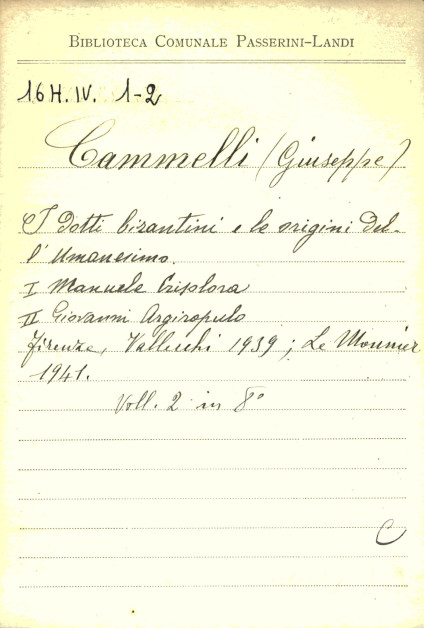 BIBLIOTECA COMUNALE PASSERINI-LANDI
16 H. IV. 1-2
Cammelli (Giuseppe)
I dotti bizantini e le origini del-
l'Umanesimo.
I Manuele Crisolora
II Giovanni Argiropulo
Firenze, Vallecchi 1939; Le Monnier
1941.
Voll. 2 in 8°
C